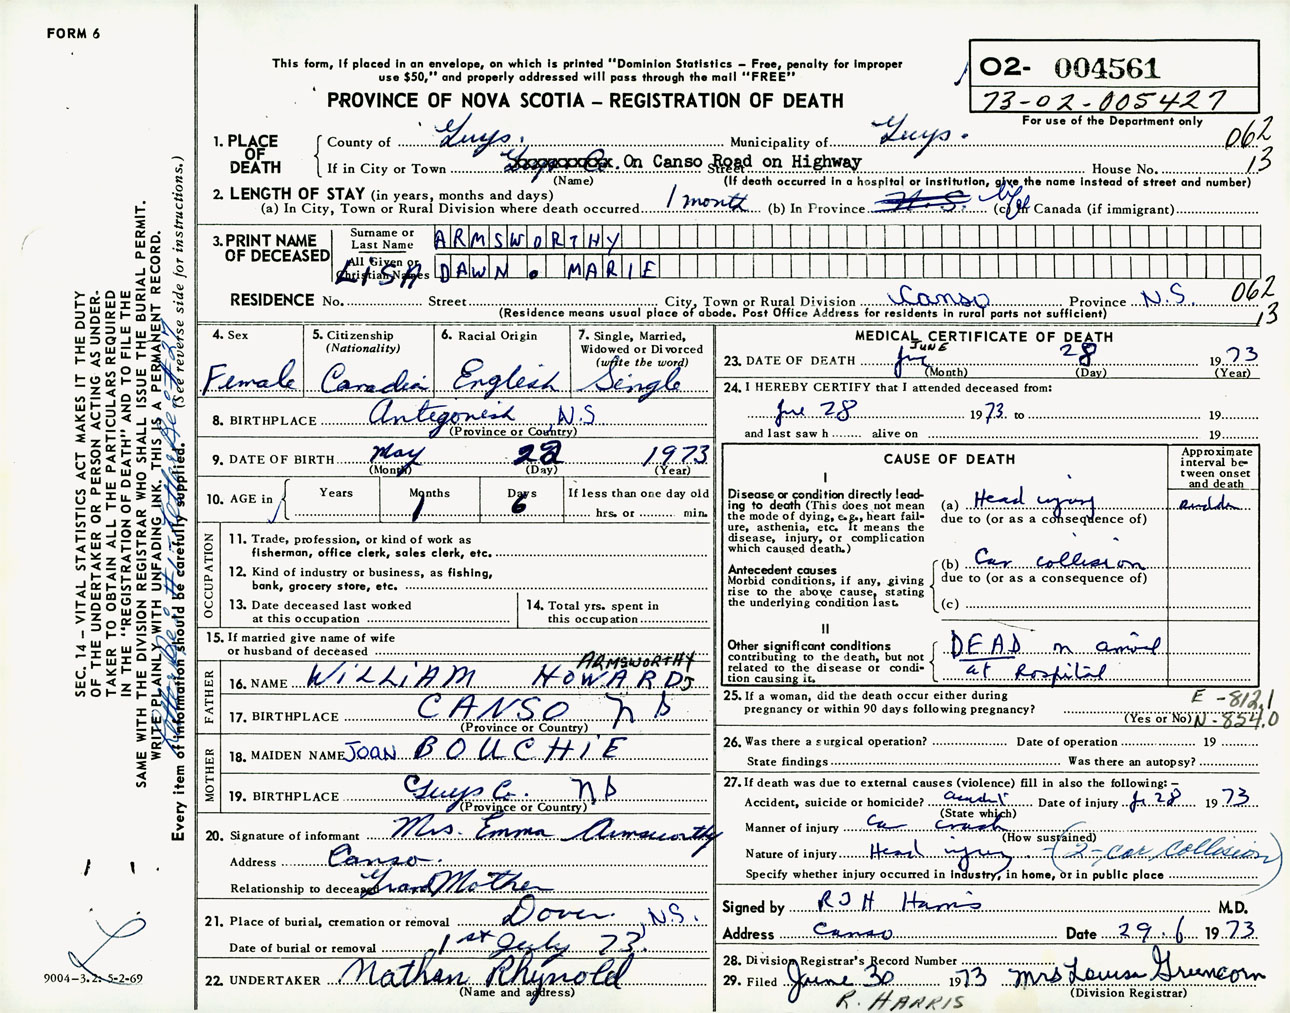 FORM 6
This form, if placed in an envelope, on which is printed "Dominion Statistics – Free, penalty for improper
use $50," and properly addressed will pass through the mail "FREE"
PROVINCE OF NOVA SCOTIA – REGISTRATION OF DEATH
O2- 004561
73-02-005427
For use of the Department only
062
13
1. PLACE OF DEATH
County of Guys. Municipality of Guys.
If in City or Town On Canso Road on Highway Street House No.
(Name) (If death occurred in a hospital or institution, give the name instead of street and number)
2. LENGTH OF STAY (in years, months and days)
(a) In City, Town or Rural Division where death occurred 1 month (b) In Province N.S. life (c) In Canada (if immigrant)
3. PRINT NAME OF DECEASED
Surname or Last Name ARMSWORTHY
All Given or Christian Names LISA DAWN. MARIE
RESIDENCE No. Street City, Town or Rural Division Canso Province N.S.
(Residence means usual place of abode. Post Office Address for residents in rural parts not sufficient)
062
13
4. Sex
Female
5. Citizenship
(Nationality)
Canadian
6. Racial Origin
English
7. Single, Married,
Widowed or Divorced
(write the word)
Single
8. BIRTHPLACE Antigonish N.S
(Province or Country)
9. DATE OF BIRTH May 22 1973
(Month) (Day) (Year)
10. AGE in
Years
Months 1
Days 6
If less than one day old
hrs. or min.
OCCUPATION
11. Trade, profession, or kind of work as
fisherman, office clerk, sales clerk, etc.
12. Kind of industry or business, as fishing,
bank, grocery store, etc.
13. Date deceased last worked
at this occupation
14. Total yrs. spent in
this occupation
15. If married give name of wife
or husband of deceased
FATHER
ARMSWORTHY
16. NAME WILLIAM HOWARD
17. BIRTHPLACE CANSO NS
(Province or Country)
MOTHER
18. MAIDEN NAME JOAN BOUCHIE
19. BIRTHPLACE Guys Co. NS
(Province or Country)
20. Signature of informant Mrs. Emma Armsworthy
Address Canso.
Relationship to deceased GrandMother
21. Place of burial, cremation or removal Dover N.S.
Date of burial or removal 1st July 73.
22. UNDERTAKER Nathan Rhynold
(Name and address)
MEDICAL CERTIFICATE OF DEATH
23. DATE OF DEATH JUNE 28 1973
(Month) (Day) (Year)
24. I HEREBY CERTIFY that I attended deceased from:
28 1973 to 19
and last saw h alive on 19
CAUSE OF DEATH
Approximate
interval be-
tween onset
and death
I
Disease or condition directly lead-
ing to death (This does not mean
the mode of dying, e.g., heart fail-
ure, asthenia, etc. It means the
disease, injury, or complication
which caused death.)
(a) Head injury sudden
due to (or as a consequence of)
Antecedent causes
Morbid conditions, if any, giving
rise to the above cause, stating
the underlying condition last.
(b) Car collision
due to (or as a consequence of)
(c)
II
Other significant conditions
contributing to the death, but not
related to the disease or condi-
tion causing it.
DEAD on arrival
at hospital
25. If a woman, did the death occur either during
pregnancy or within 90 days following pregnancy?
(Yes or No)
E -812.1
N-854.0
26. Was there a surgical operation? Date of operation 19
State findings Was there an autopsy?
27. If death was due to external causes (violence) fill in also the following: –
Accident, suicide or homicide? accident Date of injury 28 1973
(State which)
Manner of injury Car crash
(How sustained)
Nature of injury Head injury. - (2-car collision)
Specify whether injury occurred in industry, in home, or in public place
Signed by R J H Harris M.D.
Address Canso Date 29.6 1973
28. Division Registrar's Record Number
29. Filed June 30 1973 Mrs Louise Greencorn
(Division Registrar)
R. HARRIS
SEC. 14 – VITAL STATISTICS ACT MAKES IT THE DUTY
OF THE UNDERTAKER OR PERSON ACTING AS UNDER-
TAKER TO OBTAIN ALL THE PARTICULARS REQUIRED
IN THE "REGISTRATION OF DEATH" AND TO FILE THE
SAME WITH THE DIVISION REGISTRAR WHO SHALL ISSUE THE BURIAL PERMIT.
WRITE PLAINLY WITH UNFADING INK. THIS IS A PERMANENT RECORD.
Every item of information should be carefully supplied. (See reverse side for instructions.)
9004-3.2: 5-2-69